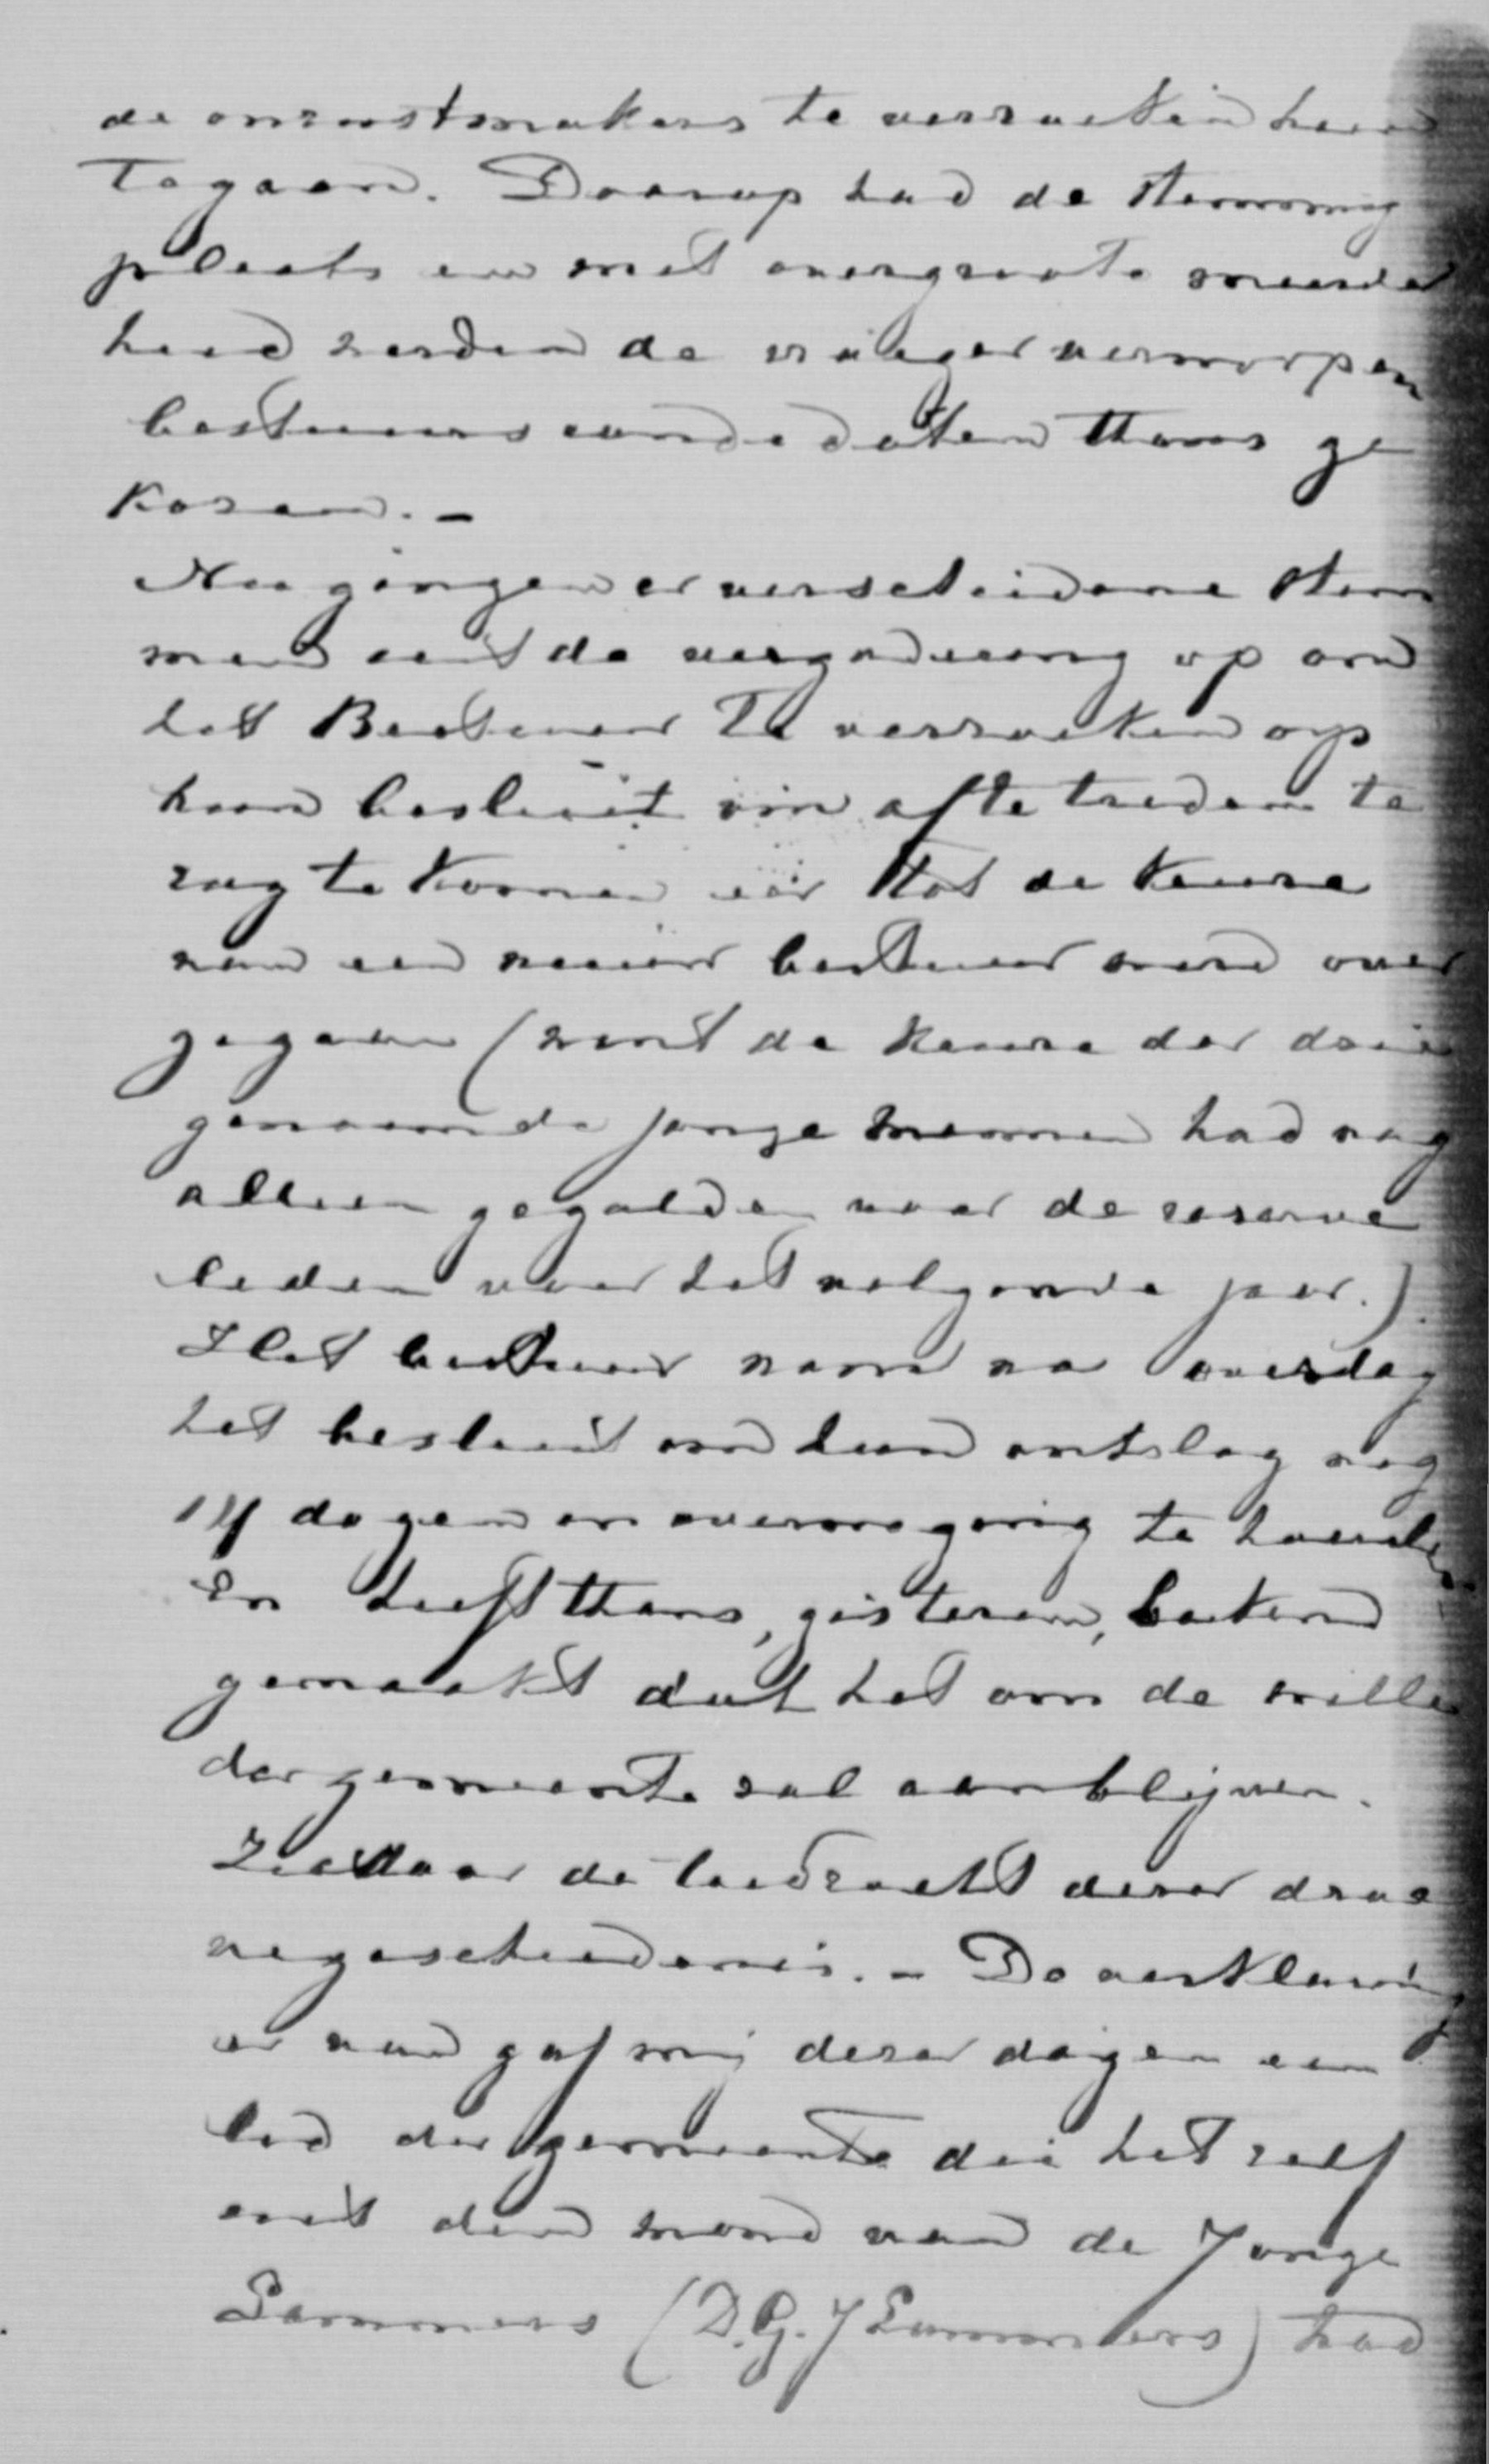 de onrustmakers te verzoeken heen
te gaan. Daarop had de stemming
plaats en met overgroote meerder
heid werden de vroeger verworpen
bestuurscandidaten thans ge
kozen. -
Nu gingen er verscheidene stem
men uit de vergadering op om
het Bestuur te verzoeken op
hun besluit om af te treden te
rug te komen eer tot de keuze
van een nieuw bestuur werd over
gegaan (want de keuze der drie
genoemde jonge mannen had nog
alleen gegolden voor de reserve
leden voor het volgende jaar.)
Het bestuur nam na overleg
het besluit om hun ontslag nog
14 dagen in overweging te houden
en heeft thans, gisteren, bekend
gemaakt dat het om de wille
der gemeente zal aanblijven.
Ziedaar de toedracht dezer droe
vegeschiedenis. - De verklaring
er van gaf mij dezer dagen een
lid der gemeente die het zelf
uit den mond van de Jonge
Lammers (D.G.J Lammers) had